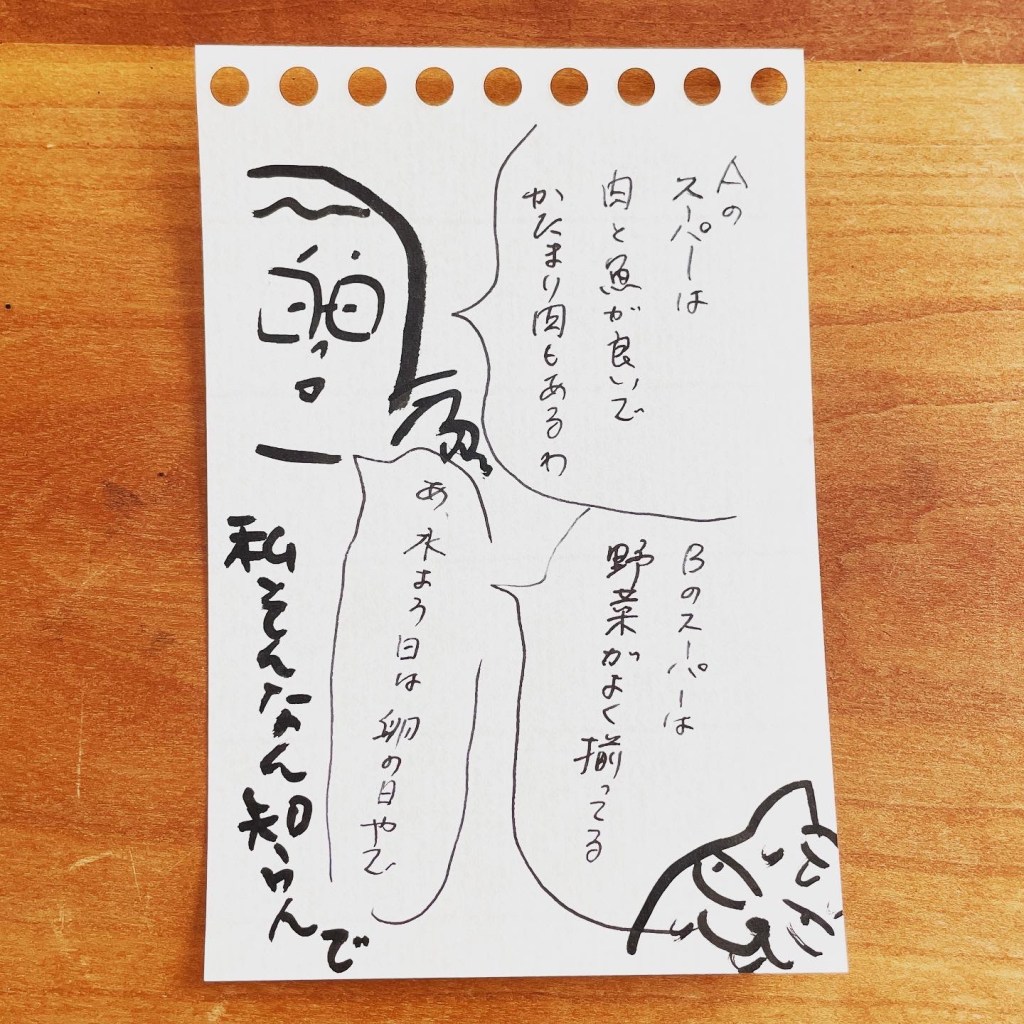 Aの
スーパーは
肉と魚が良いで
かたまり肉もあるわ
Bのスーパーは
野菜がよく揃ってる
あ、水よう日は
卵の日やで
私そんなん知らんで